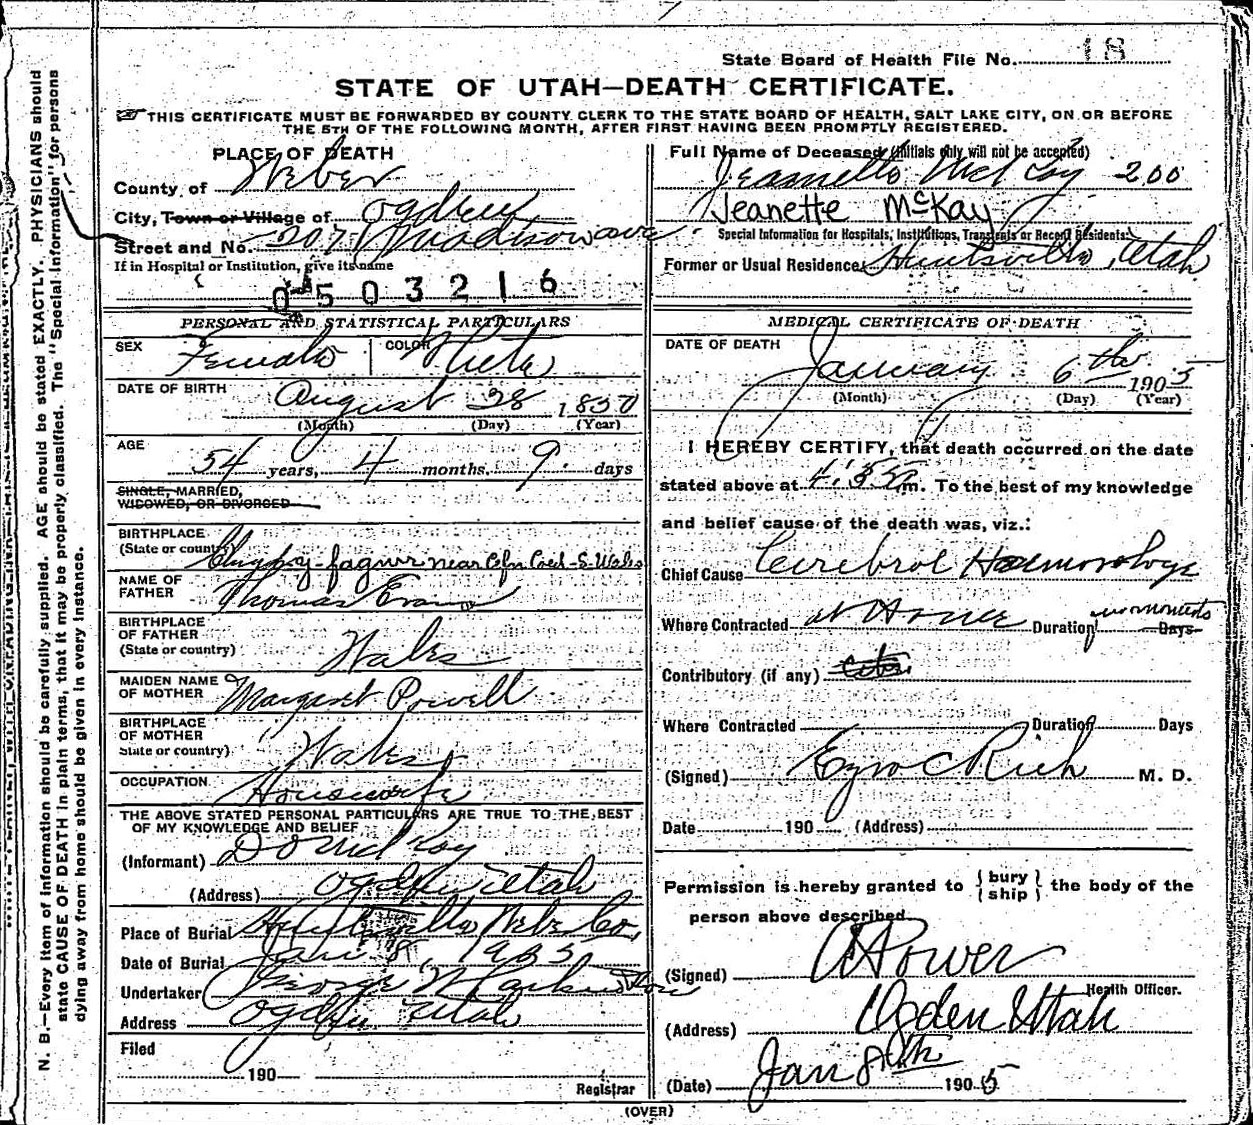 State Board of Health File No. 18
STATE OF UTAH—DEATH CERTIFICATE.
THIS CERTIFICATE MUST BE FORWARDED BY COUNTY CLERK TO THE STATE BOARD OF HEALTH, SALT LAKE CITY, ON OR BEFORE
THE 5TH OF THE FOLLOWING MONTH, AFTER FIRST HAVING BEEN PROMPTLY REGISTERED.
PLACE OF DEATH
County of Weber
City, Town or Village of Ogden
Street and No. Madison ave
If in Hospital or Institution, give its name
0 5 0 3 2 1 6
PERSONAL AND STATISTICAL PARTICULARS
SEX Female COLOR White
DATE OF BIRTH August 28 1850
(Month) (Day) (Year)
AGE 54 years, 4 months, 9 days
SINGLE, MARRIED,
WIDOWED, OR DIVORCED
BIRTHPLACE
(State or country) near Cefn Coed-S-Wales
NAME OF
FATHER Thomas Evans
BIRTHPLACE
OF FATHER
(State or country) Wales
MAIDEN NAME
OF MOTHER Margaret Powell
BIRTHPLACE
OF MOTHER
State or country) Wales
OCCUPATION Housework
THE ABOVE STATED PERSONAL PARTICULARS ARE TRUE TO THE BEST
OF MY KNOWLEDGE AND BELIEF
(Informant)
(Address) Ogden Utah
Place of Burial Huntsville Weber Co.
Date of Burial Jan 8, 1905
Undertaker George W Larkin
Address Ogden Utah
Filed
190
Registrar
Full Name of Deceased (Initials only will not be accepted)
Jeannette McKay 200
Jeanette McKay
Special Information for Hospitals, Institutions, Transients or Recent Residents:
Former or Usual Residence Huntsville, Utah
MEDICAL CERTIFICATE OF DEATH
DATE OF DEATH
January 6th 1905
(Month) (Day) (Year)
I HEREBY CERTIFY, that death occurred on the date
stated above at 4:35 m. To the best of my knowledge
and belief cause of the death was, viz.:
Chief Cause Cerebral Haemorrhage
Where Contracted at Home Duration Days
Contributory (if any)
Where Contracted Duration Days
(Signed) Ezra C Rich M. D.
Date 190 (Address)
Permission is hereby granted to { bury ship } the body of the
person above described
(Signed) A Power
Health Officer.
(Address) Ogden Utah
(Date) Jan 8th 1905
(OVER)
N. B.—Every item of information should be carefully supplied. AGE should be stated EXACTLY. PHYSICIANS should
state CAUSE OF DEATH in plain terms, that it may be properly classified. The "Special Information" for persons
dying away from home should be given in every instance.